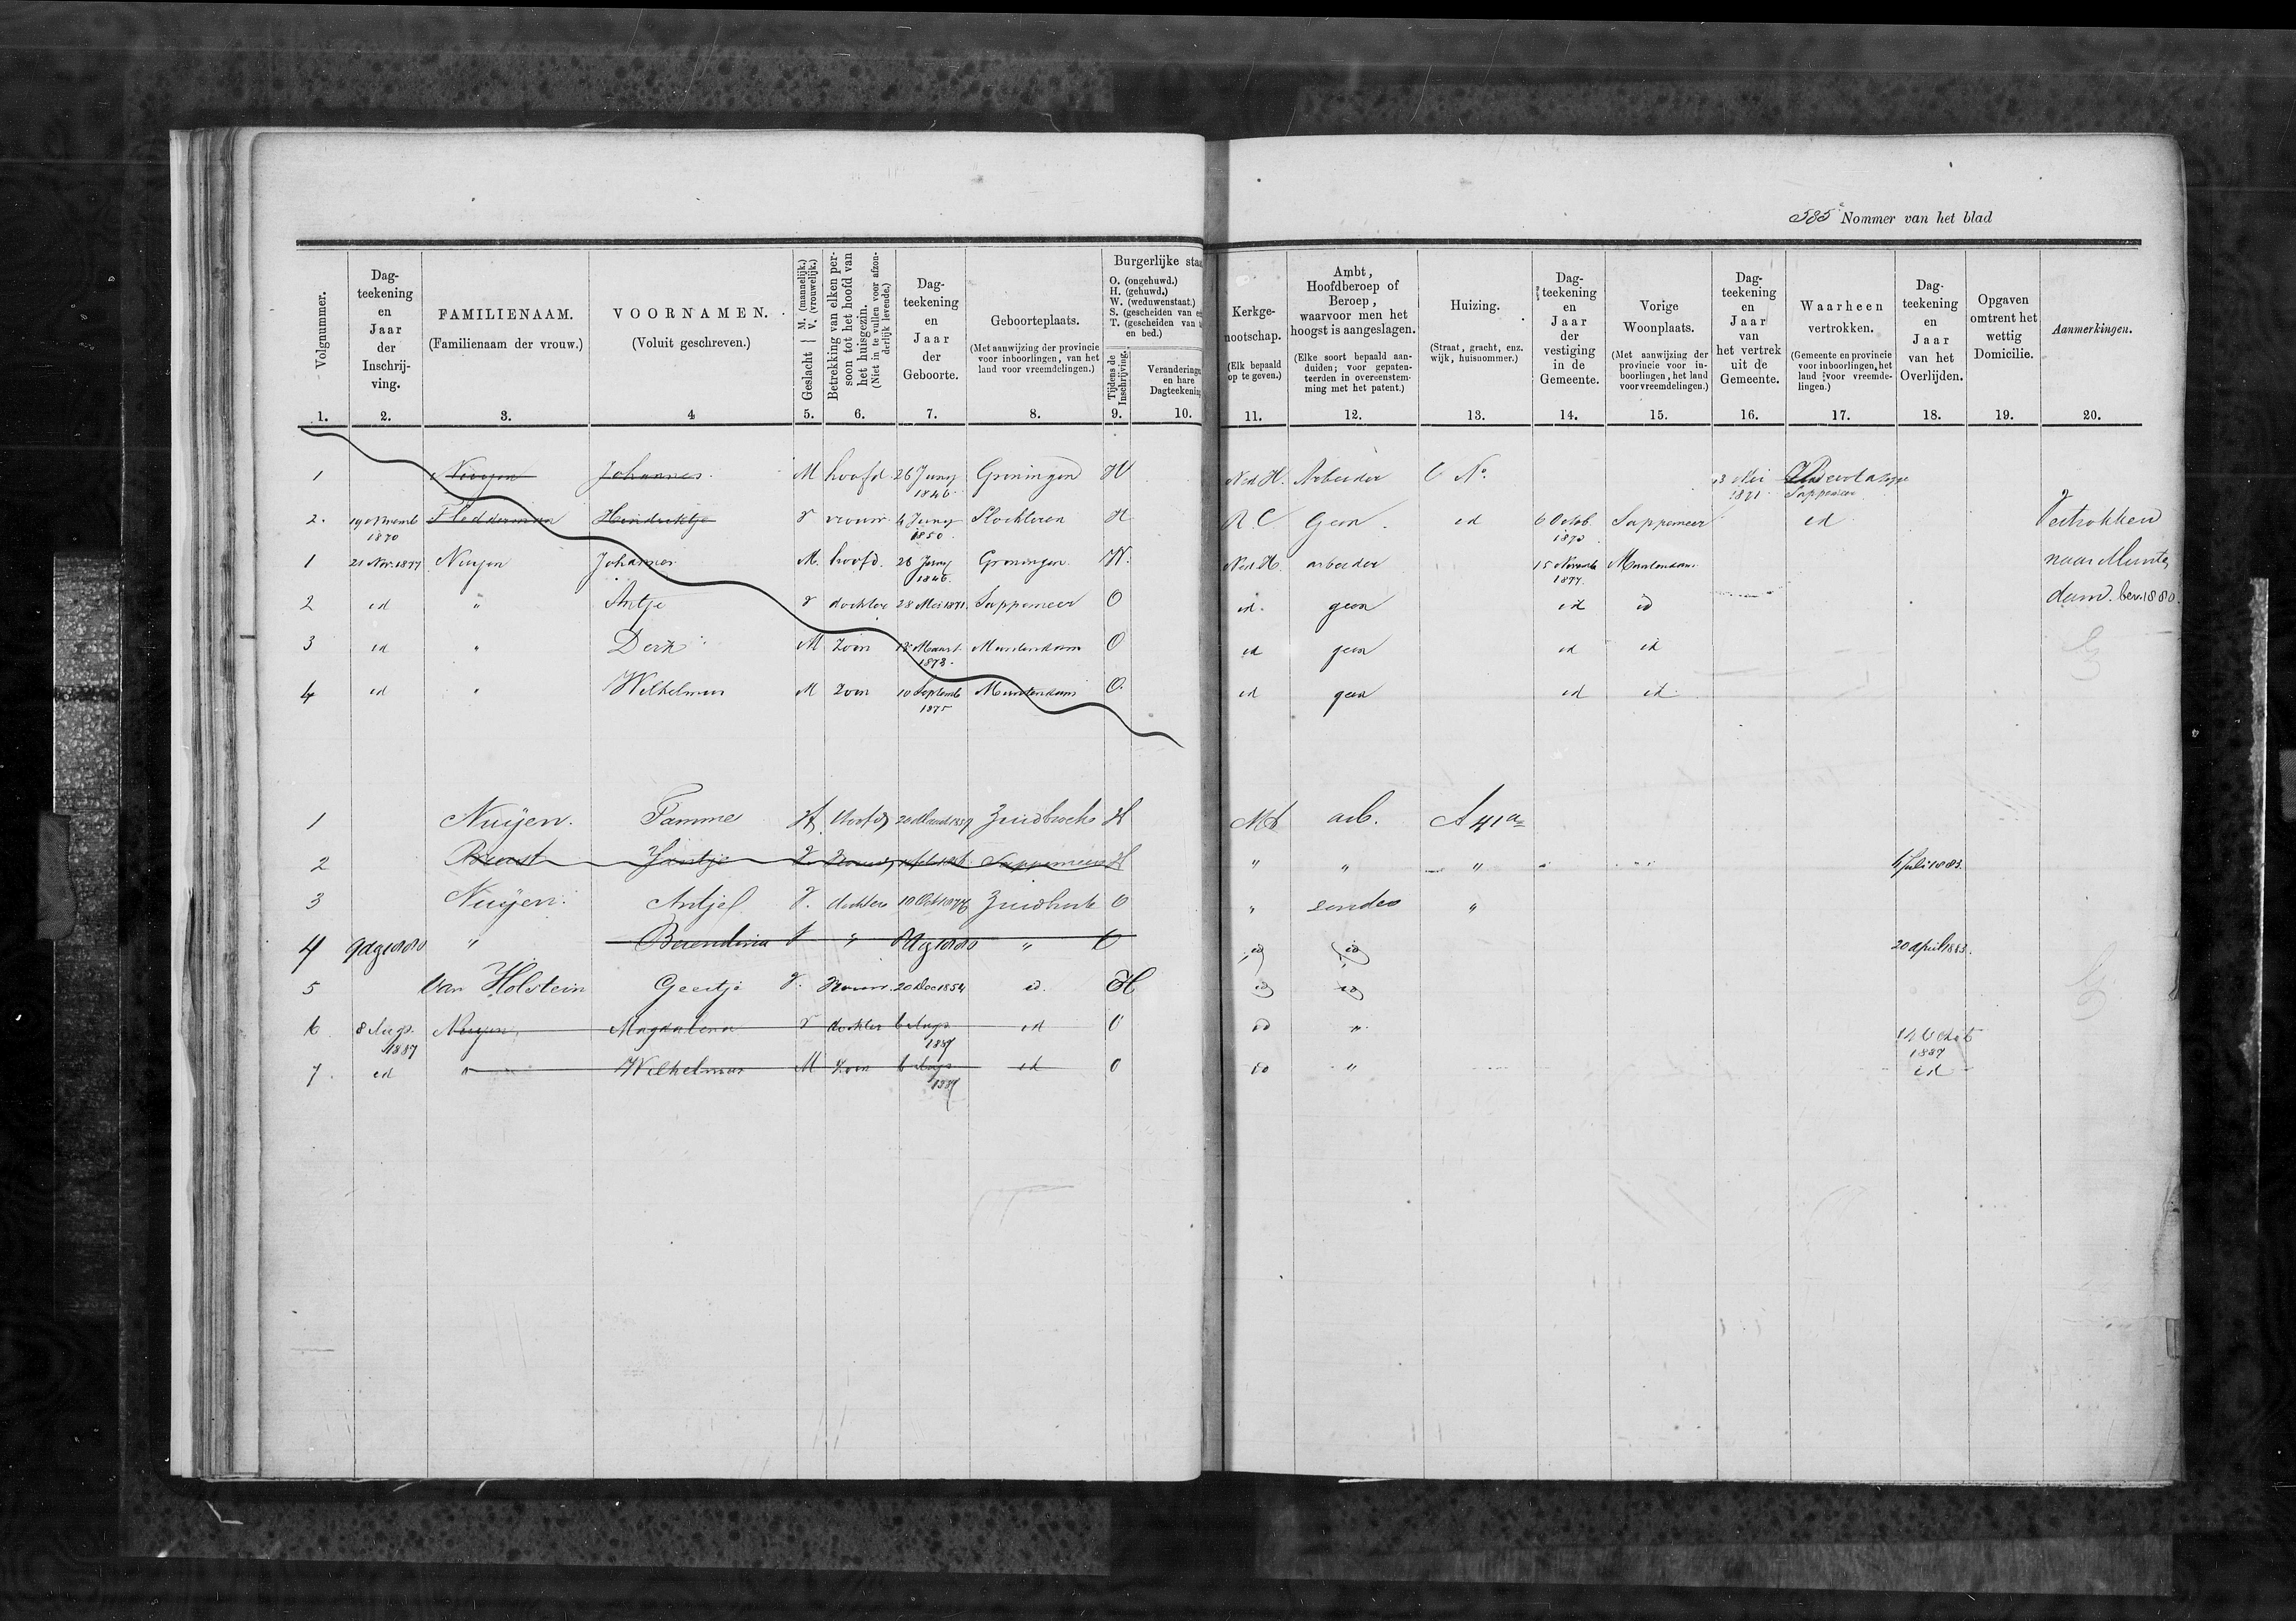 585 Nommer van het blad
Volgnummer. Dag-teekening en Jaar der Inschrij-ving. FAMILIENAAM. (Familienaam der vrouw.) VOORNAMEN. (Voluit geschreven.) Geslacht M. (mannelijk.) V. (vrouwelijk.) Betrekking van elken per-soon tot het hoofd van het huisgezin. (Niet in te vullen voor afzon-derlijk levende.) Dag-teekening en Jaar der Geboorte. Geboorteplaats. (Met aanwijzing der provincie voor inboorlingen, van het land voor vreemdelingen.) Burgerlijke staa O. (ongehuwd.) H. (gehuwd.) W. (weduwenstaat.) S. (gescheiden van T. (gescheiden van en bed.) Tijdens de Inschrijving. Verandering en hare Dagteekenin
Kerkge-nootschap. (Elk bepaald op te geven.) Ambt, Hoofdberoep of Beroep, waarvoor men het hoogst is aangeslagen. (Elke soort bepaald aan-duiden; voor gepaten-teerden in overeenstem-ming met het patent.) Huizing. (Straat, gracht, enz. wijk, huisnommer.) Dag-teekening en Jaar der vestiging in de Gemeente. Vorige Woonplaats. (Met aanwijzing der provincie voor in-boorlingen, het land voor vreemdelingen.) Dag-teekening en Jaar van het vertrek uit de Gemeente. Waarheen vertrokken. (Gemeente en provincie voor inboorlingen, het land voor vreemde-lingen.) Dag-teekening en Jaar van het Overlijden. Opgaven omtrent het wettig Domicilie. Aanmerkingen.
1. 2. 3. 4 5. 6. 7. 8. 9. 10. 11. 12. 13. 14. 15. 16. 17. 18. 19. 20.
1 Nuyen Johannes. M hoofd 26 Juny 1846 Groningen H Ned H. Arbeider C No. 13 Mei 1871 Sappemeer
2. 19 Novemb 1870 Fledderman Hindriktje V vrouw 4 Juny 1850. Slochteren H R C Geen. id 6 Octob. 1870 Sappemeer id Vertrokken
1 21 Nov. 1877 Nuyen Johannes M. hoofd. 26 Juny 1846. Groningen W. Ned H. arbeider 15 Novemb 1877. Muntendam naar Munten
2 id " Antje V dochter 28 Mei 1871. Sappemeer O id. geen id id dam. bev. 1880.
3 id " Derk M Zoon Maart 1873. Muntendam O id geen id id
4 id " Wilhelmus M Zoon 10 Septemb 1875 Muntendam O. id geen id id.
1 Nuijen. Tamme Hoofd 20 Zuidbroek H arb. A 41a
2 Jantje V Sappemeer H " " " 6 Juli 1883.
3 Nuijen. Antje V. dochter 10 Oct 1876 Zuidbroek O " zonder "
4 9 Aug 1880 " Berendina V " 8 Aug 1880 " O id id 20 April 1883.
5 van Holstein Geertje V. Vrouw. 20 Dec 1854 id. H id id
6. 8 Augs. 1887 Nuyen, Magdalena V dochter 6 Augs 1887 id O id " 14 Octob 1887
7. id " Wilhelmus M Zoon 6 Augs 1887 id O id " id